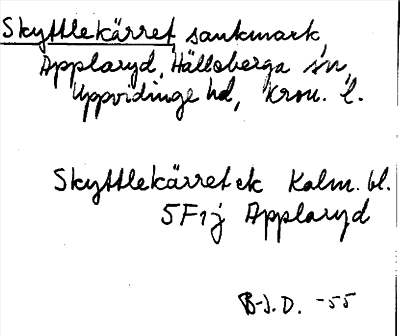 Skyttlekärret, sankmark,
Applaryd, Hälleberga sn,
Uppvidinge hd, Kron. l.
Skyttlekärret ek Kalm. bl.
5F1j Applaryd
B-J.D. -55